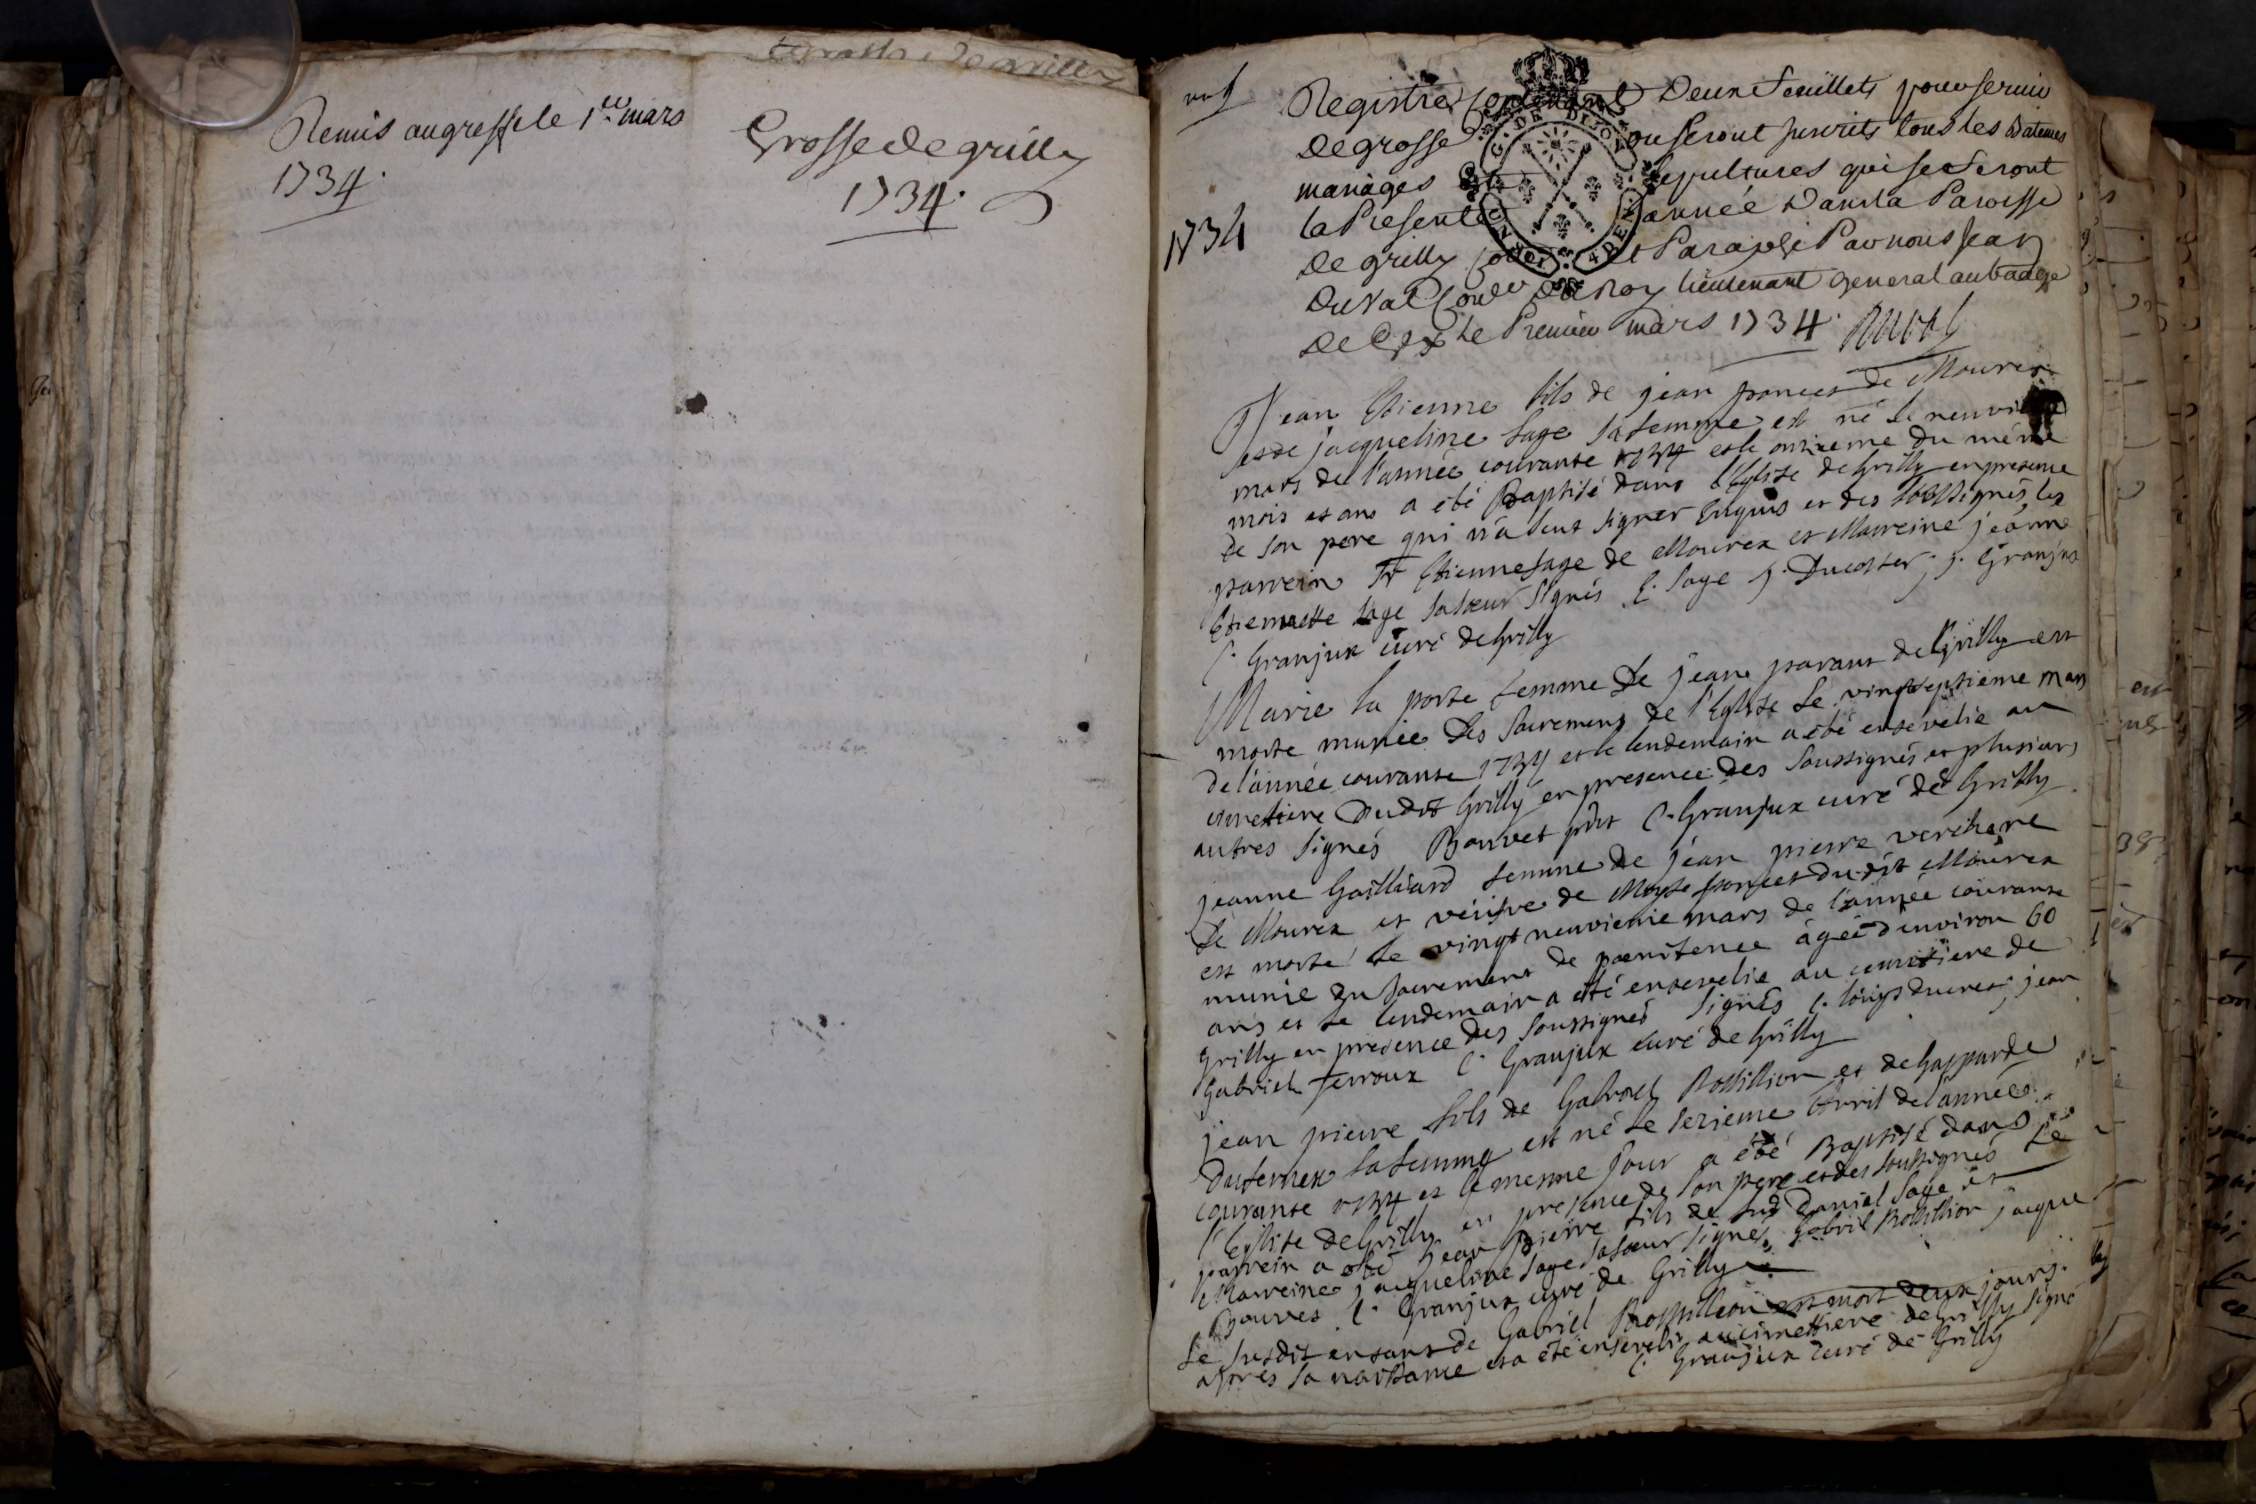 Grosse de Grilly
Remis au greffe le 1er mars
1734.
Grosse de grilly
1734.
1734
Registre contenant Deux feuillets pour servir
de grosse ou seront Inscrits tous les Batemes
mariages sepultures qui se feront
la Presente année Dans la Paroisse
de grilly Cotté et Paraphé Par nous Jean
Duval Coner du Roy lieutenant general au bailage
de Gex le Premier mars 1734. Duval
G. DE DIJON
4 DEN.
Jean Etienne fils de jean poncet de Mourex
et de jacqueline sage sa femme est né le neuvieme
mars de l'année courante 1734 et le onzieme du même
mois et an a été Baptisé dans l'Eglise de Grilly en presence
de son pere qui n'a seut signer Enquis et des soussignés les
parrein Sr Etienne sage de Mourex et Marreine jeanne
Etiennette sage sa soeur signés E. sage j. Ducoster j. Granjux
C. Granjux curé de Grilly
Marie la porte femme de jean parant de Grilly est
morte munie des sacremens de l'Eglise le vingtseptieme mars
de l'année courante 1734 et le lendemain a été ensevelie au
cimetiere dudit Grilly en presence des soussignés et plusieurs
autres signés Bouvet C. Granjux curé de Grilly
jeanne Gailliard femme de jean pierre verchere
de Mourex et véufve de Moyse poncet dudit Mourex
est morte le vingt neuvieme mars de l'année courante
munie du sacrement de poenitence âgée d'environ 60
ans et le lendemain a été ensevelie au cemitiere de
Grilly en presence des soussignés signés jean
Gabriel ferroux C. Granjux curé de Grilly
jean pierre fils de Gabriel Rossillion et de Gasparde
Duternex sa femme est né le sezieme Avril de l'année
courante 1734 et le mesme jour a été Baptisé dans
l'Eglise de Grilly en presence de son pere et des soussignés le
parrein a été jean pierre fils de feu Daniel sage et
Marreine jacqueline sage sa soeur signés Gabriel Rossillion jacque
Bouvet C. Granjux curé de Grilly
Le susdit enfant de Gabriel Rossillion est mort deux jours
après sa naissance et a été enseveli au cimettiere de Grilly signé
C. Granjux curé de Grilly